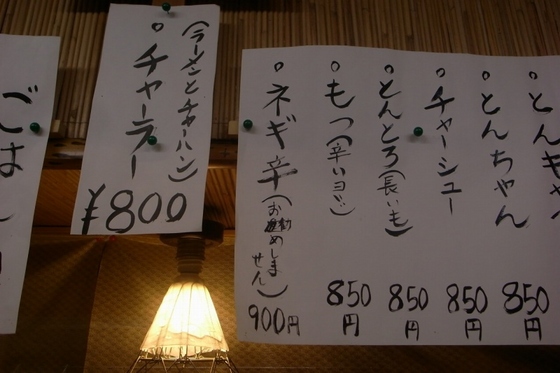 とんキ
○とんちゃん
850円
○チャーシュー
850円
○とんとろ(長いも)
850円
○もつ(辛いヨ)
850円
○ネギ辛(お勧めしません)
900円
(ラーメンとチャーハン)
○チャーラー
¥800
ごは